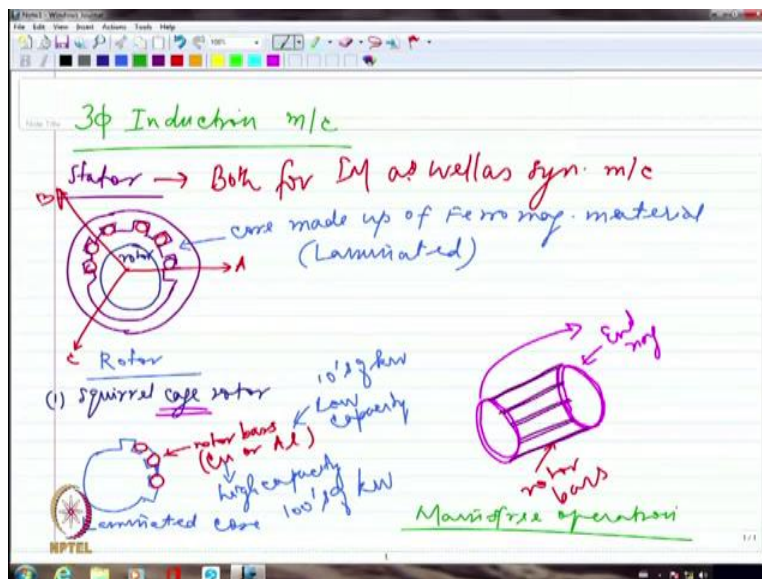 Note1 - Windows Journal
File Edit View Insert Actions Tools Help
100%
B I
Note Title
3φ Induction m/c
Stator → Both for IM as well as syn. m/c
B
core made up of Ferro mag. material
(Laminated)
rotor
A
C
Rotor
(1) Squirrel cage rotor
10's of kW
Low capacity
rotor bars
(Cu or Al)
high capacity
100's of kW
Laminated core
End ring
rotor bars
operation
NPTEL
1/1
1